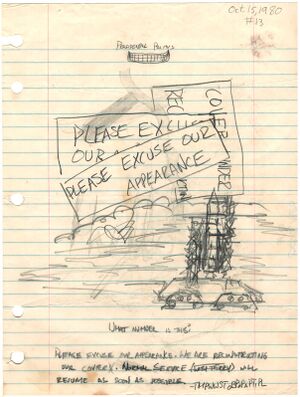 Oct 15, 1980
#13
PERIPHERAL
PLEASE EXCUSE
OUR
PLEASE EXCUSE OUR
APPEARANCE
COVER
UNDER
REC
TION
WHAT NUMBER IS THIS?
PLEASE EXCUSE OUR APPEARANCE. WE ARE RECONSTRUCTING
OUR CORTEX. NORMAL SERVICE WILL
RESUME AS SOON AS POSSIBLE.